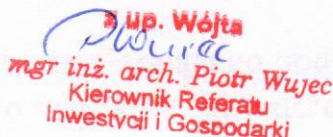 z up. Wójta
mgr inż. arch. Piotr Wujec
Kierownik Referatu
Inwestycji i Gospodarki